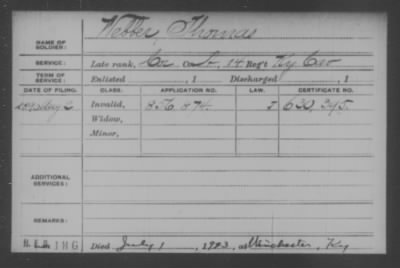 NAME OF SOLDIER: Webber, Thomas
SERVICE: Late rank, Co. L, 14 Reg't Ky. Cav
TERM OF SERVICE: Enlisted , 1 Discharged , 1
DATE OF FILING. CLASS. APPLICATION NO. LAW. CERTIFICATE NO.
Invalid, 856.874. J 630,395.
Widow,
Minor,
ADDITIONAL SERVICES:
REMARKS:
Died July 1, 1923, at Winchester, Ky